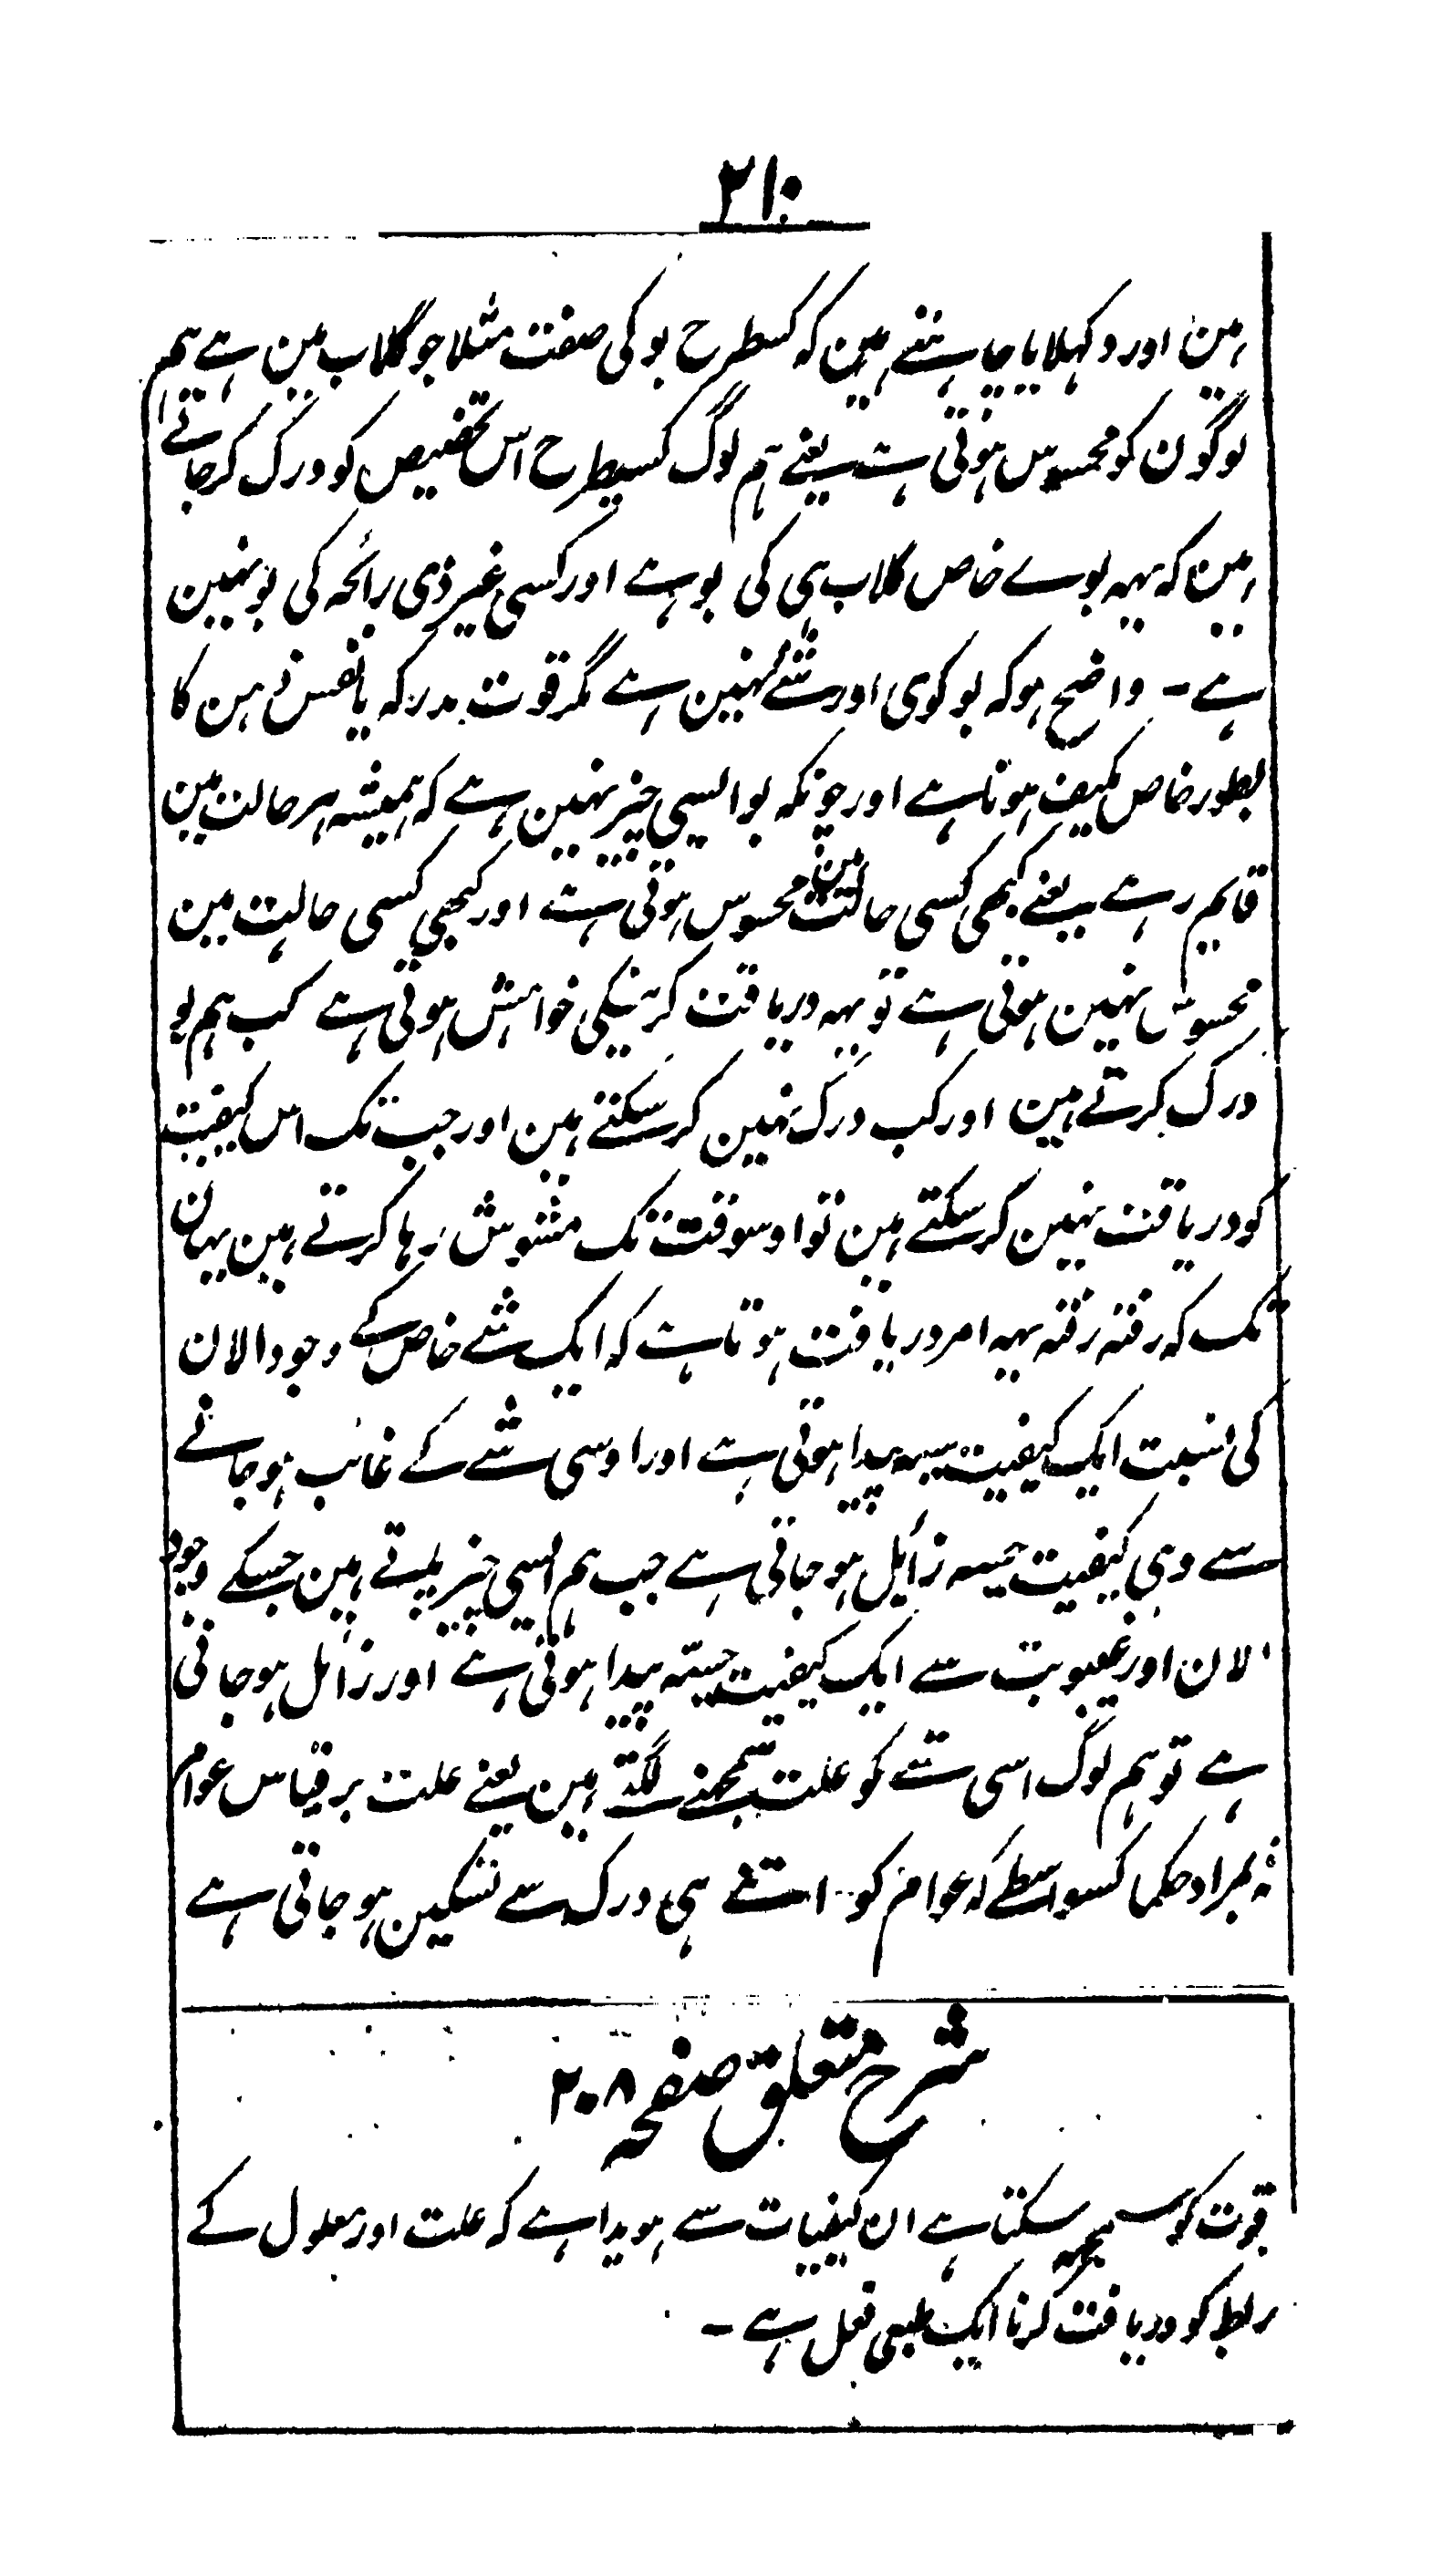 ۲۱۰
ہین اور دکہلایا چاہتے ہین کہ کسطرح بو کی صفت مثلا جو گلاب مین ہے ہم
لوگون کو محسوس ہوتی ہے یعنے ہم لوگ کسیطرح اس تخصیص کو درک کر جاتے
ہین کہ یہہ بوے خاص گلاب ہی کی بو ہے اور کسی غیر ذی رائحہ کی بو نہین
ہے ۔ واضح ہو کہ بو کوی اور شے نہین ہے مگر قوت مدرکہ یا نفس ذہن کا
بطور خاص مکیف ہونا ہے اور چونکہ بو ایسی چیز نہین ہے کہ ہمیشہ ہر حالت مین
قایم رہے یعنے کبھی کسی حالت مین محسوس ہوتی ہے اور کبھی کسی حالت مین
محسوس نہین ہوتی ہے تو یہہ دریافت کرنیکی خواہش ہوتی ہے کب ہم بو
درک کرتے ہین اور کب درک نہین کر سکتے ہین اور جب تک اس کیفیت
کو دریافت نہین کر سکتے ہین تو اوسوقت تک مشوش رہا کرتے ہین یہان
تک کہ رفتہ رفتہ یہہ امر دریافت ہوتا ہے کہ ایک شے خاص کے وجود الان
کی نسبت ایک کیفیت پیدا ہوتی ہے اور اوسی شے کے غائب ہو جانے
سے وہی کیفیت حسیہ زایل ہو جاتی ہے جب ہم ایسی چیز پاتے ہین جسکے وجود
الان اور غیبوبت سے ایک کیفیت حسیہ پیدا ہوتی ہے اور زائل ہو جاتی
ہے تو ہم لوگ اسی شے کو علت سمجھنے لگتے ہین یعنے علت بر قیاس عوام
نہ بمراد حکما کسواسطے کہ عوام کو اتنے ہی درک سے تسکین ہو جاتی ہے
شرح متعلق صفحہ ۲۰۸
قوت کو سمجھ سکتا ہے ان کیفیات سے ہویدا ہے کہ علت اور معلول کے
ربط کو دریافت کرنا ایک طبعی فعل ہے ۔